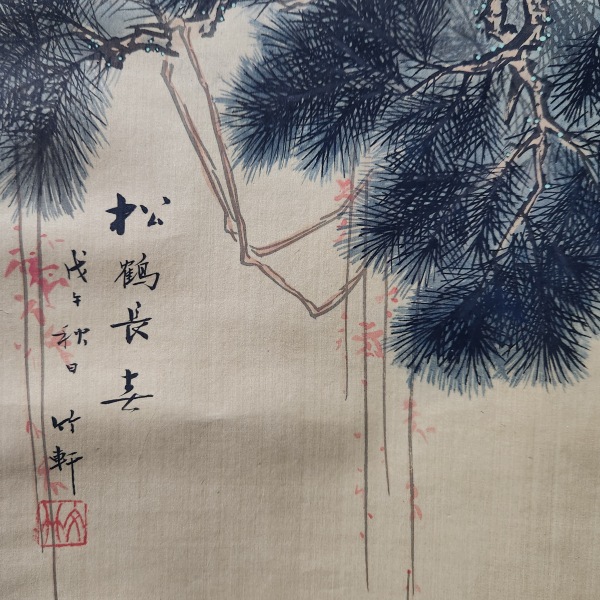 松鶴長春
戊午秋日 竹軒